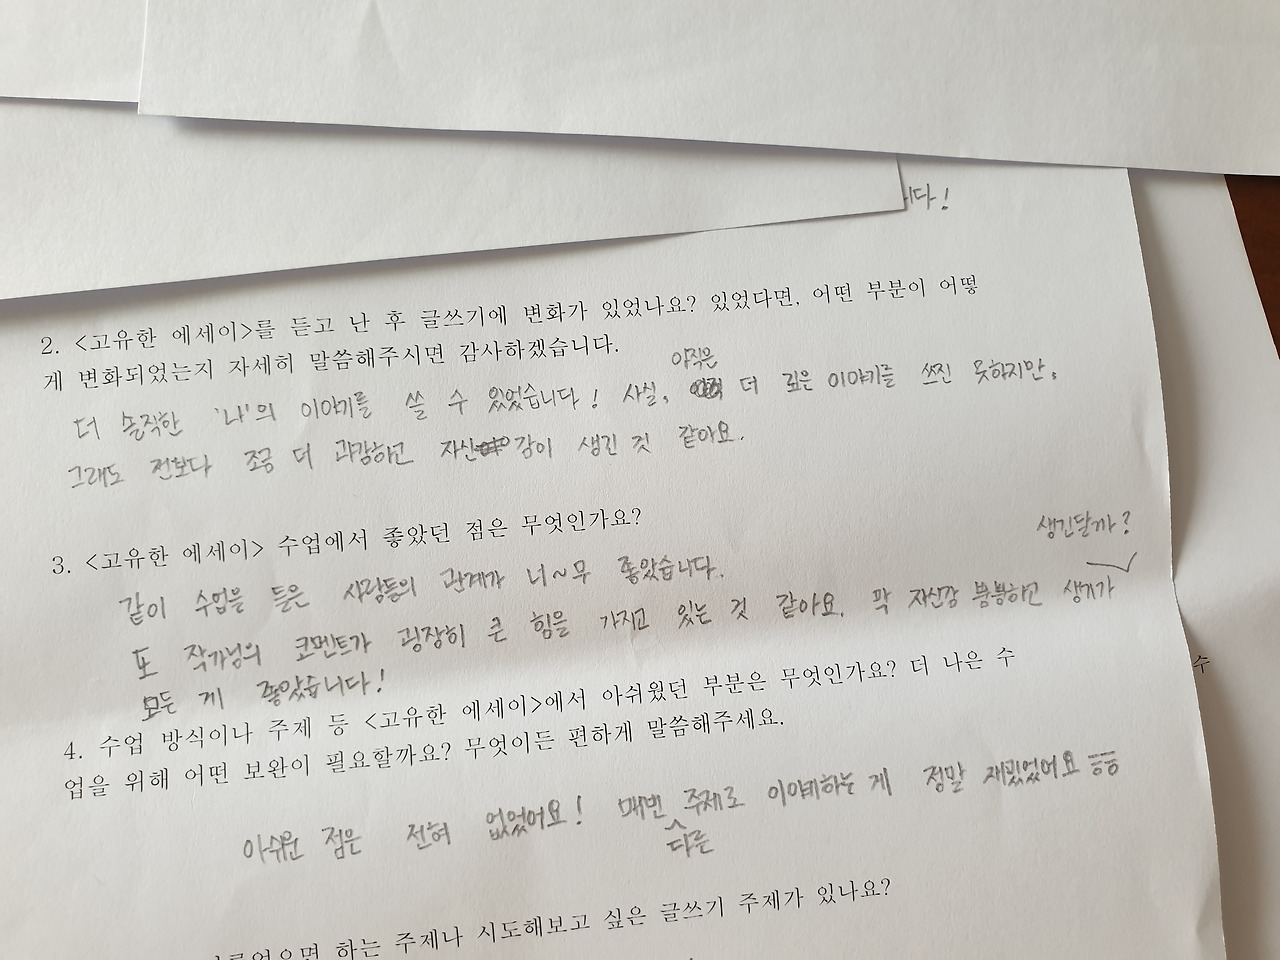 니다!
2. <고유한 에세이>를 듣고 난 후 글쓰기에 변화가 있었나요? 있었다면, 어떤 부분이 어떻
게 변화되었는지 자세히 말씀해주시면 감사하겠습니다.
아직은
더 솔직한 '나'의 이야기를 쓸 수 있었습니다! 사실, 더 깊은 이야기를 쓰진 못하지만,
그래도 전보다 조금 더 과감하고 자신감이 생긴 것 같아요.
3. <고유한 에세이> 수업에서 좋았던 점은 무엇인가요?
생긴달까?
같이 수업을 들은 사람들의 관계가 너~무 좋았습니다.
또 작가님의 코멘트가 굉장히 큰 힘을 가지고 있는 것 같아요. 막 자신감 뿜뿜하고 생기가
모든 게 좋았습니다!
4. 수업 방식이나 주제 등 <고유한 에세이>에서 아쉬웠던 부분은 무엇인가요? 더 나은 수
업을 위해 어떤 보완이 필요할까요? 무엇이든 편하게 말씀해주세요.
아쉬운 점은 전혀 없었어요! 매번 주제로 이야기하는 게 정말 재밌었어요 ㅎㅎ
다른
하는 주제나 시도해보고 싶은 글쓰기 주제가 있나요?
수